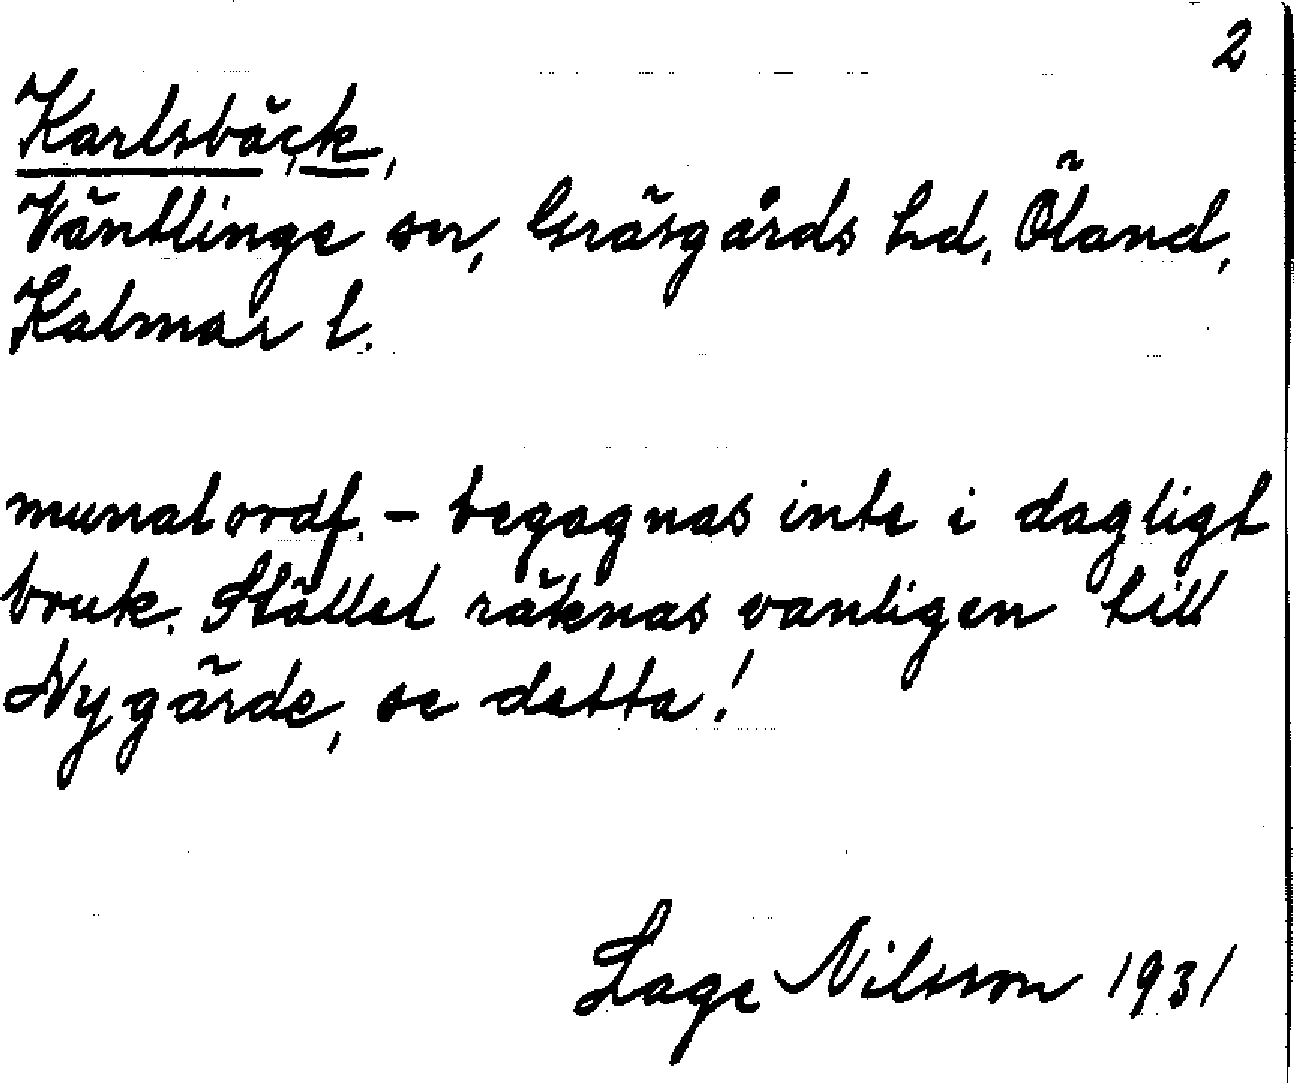 2
Karlsbäck,
Väntlinge sn, Gräsgårds hd, Öland,
Kalmar l.
munalordf. - begagnas inte i dagligt
bruk. Stället räknas vanligen till
Nygärde, se detta!
Lage Nilsson 1931